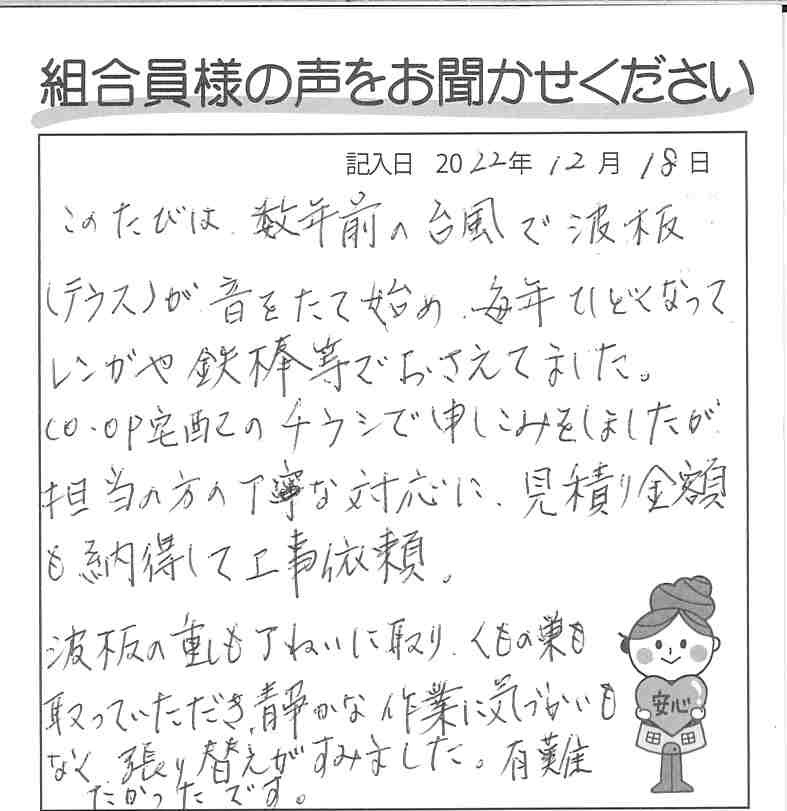 組合員様の声をお聞かせください
記入日 2022年 12月 18日
このたびは、数年前の台風で波板
(テラス)が音をたて始め、毎年ひどくなって
レンガや鉄棒等でおさえてました。
CO・OP宅配のチラシで申しこみをしましたが
担当の方の丁寧な対応に、見積り金額
も納得して工事依頼。
波板の重しも丁ねいに取り、くもの巣も
取っていただき、静かな作業に気づかいも
なく、張り替えがすみました。有難
たかったです。
安心